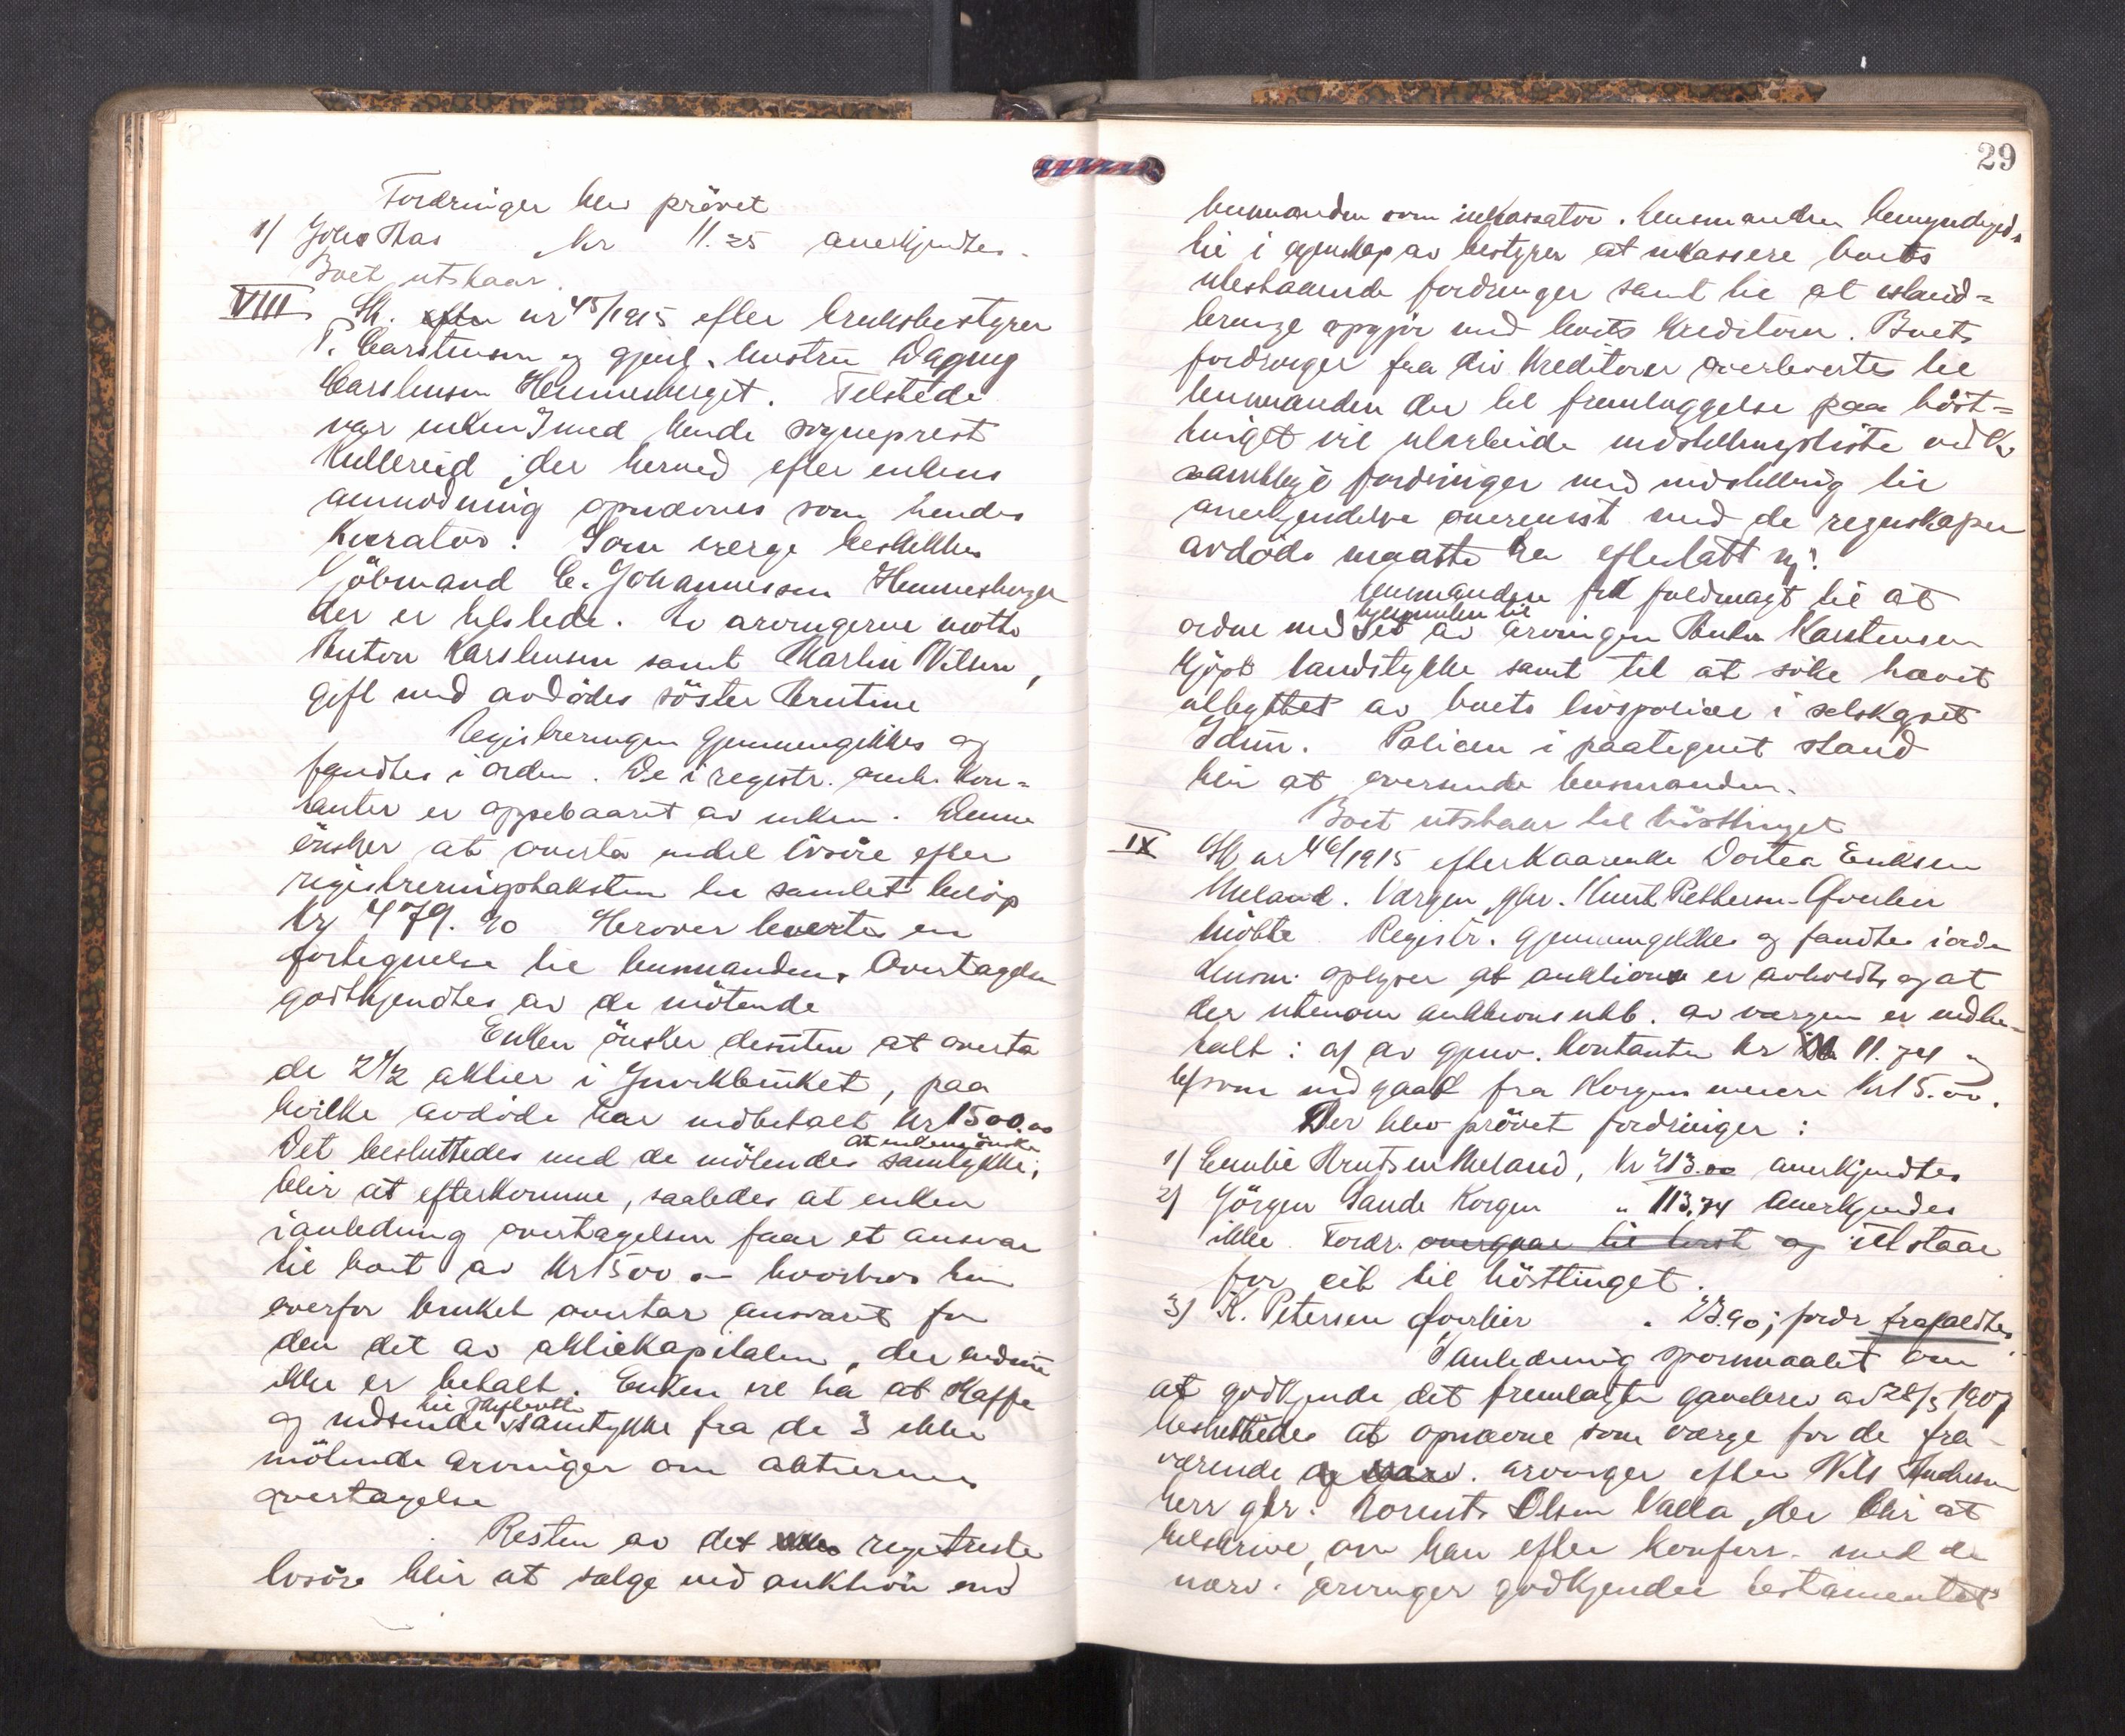 Fordringer blev prövet
1) Johs Aas kr 11.25 anerkjendtes.
Boet utstaar.
VIII. Sk. efter nr 45/1915 efter bruksbestyrer
P. Carstensen og gjenl. hustru Dagny
Carstensen Hemnesberget. Tilstede
var enken I med hende sogneprest
Kullereid der herved efter enkens
anmodning opnævnes som hendes
kurator. Som verge beskikkes
kjöbmand C. Johannessen Hemnesberget
der er tilstede. Av arvingerne mötte
Anton Karstensen samt Martin Nilsen,
gift med avdödes söster Crutine
Registreringen gjennemgikkes og
fandtes i orden. De i registr. anf. kon-
tanter er oppebaaret av enken. Denne
önsker at overta endel lösöre efter
registreringstaksten til samlet belöp
kr 479.90 Herover levertes en
fortegnelse til lensmanden. Overtagelsen
godkjendtes av de mötende
Enken önsker desuten at overta
de 2 1/2 aktier i bruket, paa
hvilke avdöde har indbetalt kr 1500.00
Det besluttedes med de mötendes samtykke, at enkens önske
blir at efterkomme, saaledes at enken
i anledning overtagelsen faar et ansvar
til boet av kr 1500.00 hvorhos hun
overfor bruket overtar ansvaret for
den del av aktiekapitalen, der endnu
ikke er betalt. Enken vil ha at skaffe
og indsende til skifteretten samtykke fra de 3 ikke
mötende arvinger om aktiernes
overtagelse
Resten av det registrerte
lösöre blir at sælge ved auktion med
29
lensmanden som inkassator. Lensmanden bemyndiges
til i egenskap av bestyrer at inkassere boets
utestaaende fordringer samt til at istand-
bringe opgjör med boets kreditorer. Boets
fordringer fra div kreditorer overlevertes til
lensmanden der til fremlæggelse paa höst-
tinget vil utarbeide indstillingsliste vedk.
samtlige fordringer med indstilling til
anerkjendelse overensst. med de regnskaper
avdöde maatte ha efterlatt sig.
Lensmanden fik fuldmagt til at
ordne med hjemmelen til det av arvingen Anton Karstensen
kjöpt landstykke samt til at söke hævet
utbyttet av boets livspolice i selskapet
Idun. Policen i paategnet stand
blir at oversende lensmanden.
Boet utstaar til hösttinget
IX Sk nr 46/1915 efter kaarenke Dortea Eriksen
Meland. Værgen, gbr. Knut Pettersen Overlien
mötte. Registr. gjennemgikkes og fandtes i orden
Lensm. oplyser at auktion er avholdt og at
der utenom auktionsutb. av værgen er indbe-
talt: a) av gjenv. kontanter kr 11.74 og
b) som indgaat fra Korgen meieri kr 15.00.
Der blev prövet fordringer:
1) Emilie Knutsen Meland, kr 213.00 anerkjendtes
2) Jörgen Sande Korgen " 113.74 anerkjendes
ikke. Fordr. overgaar til tvist og utstaar
for eib til hösttinget.
3) K. Petersen Overlier " 23.90; fordr frafaldtes.
I anledning spörsmaalet om
at godkjende det fremlagte gavebrev av 28/3 1907
besluttedes at opnævne som værge for de fra-
værende arvinger efter Nils Andersen
herr gbr. Lorents Olsen Valla, der blir at
tilskrive, om han efter konferr. med de
nærv. arvinger godkjender testamentet